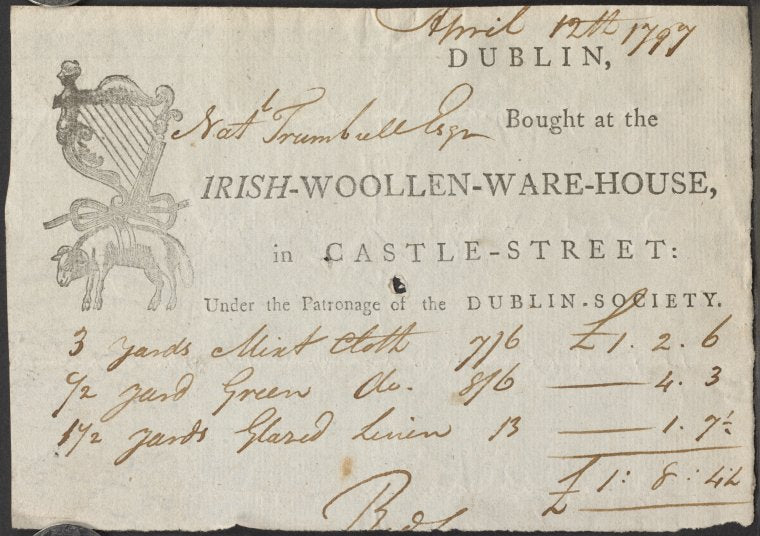 April 12th 1797
DUBLIN,
Natl Trumbull Esqr Bought at the
IRISH-WOOLLEN-WARE-HOUSE,
in CASTLE-STREET:
Under the Patronage of the DUBLIN-SOCIETY.
3 yards Mixt Cloth 7/6 £1. 2. 6
1/2 yard Green do. 8/6 — 4. 3
1 1/2 yards Glazed Linen 13 — 1. 7 1/2
£ 1: 8: 4 1/2